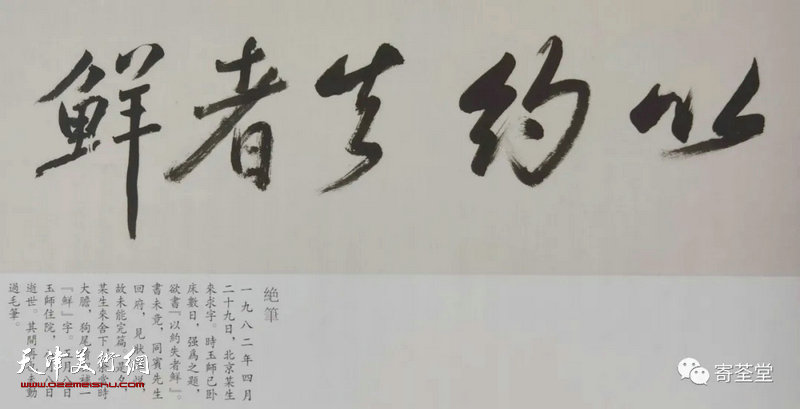 以約失者鮮
絶筆
一九八二年四月
二十九日，北京某生
來求字。時玉師已卧
床數日，强爲之題，
欲書『以約失者鮮』。
書未竟，同賓先生
回府，見
故未能完篇。是夕，
某生來舍下，當時
大膽，狗尾補一
『鮮』字。月八日
玉師住院，月八日
逝世。其間再未動
過毛筆。
天津美術網
www.022meishu.com
寄荃堂